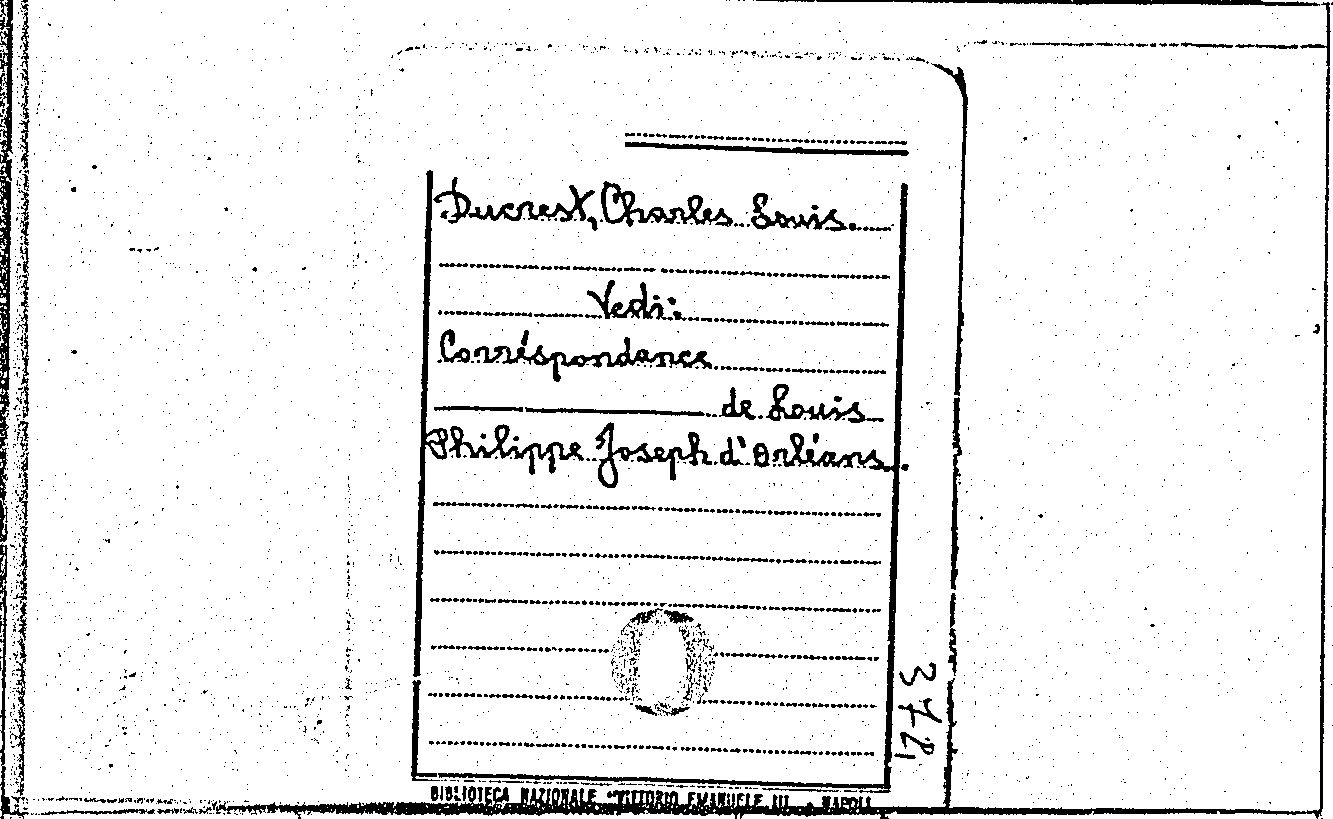 Ducrest, Charles Louis.
Vedi:
Corréspondance
de Louis
Philippe Joseph d'Orléans.
BIBLIOTECA NAZIONALE "VITTORIO EMANUELE III" NAPOLI